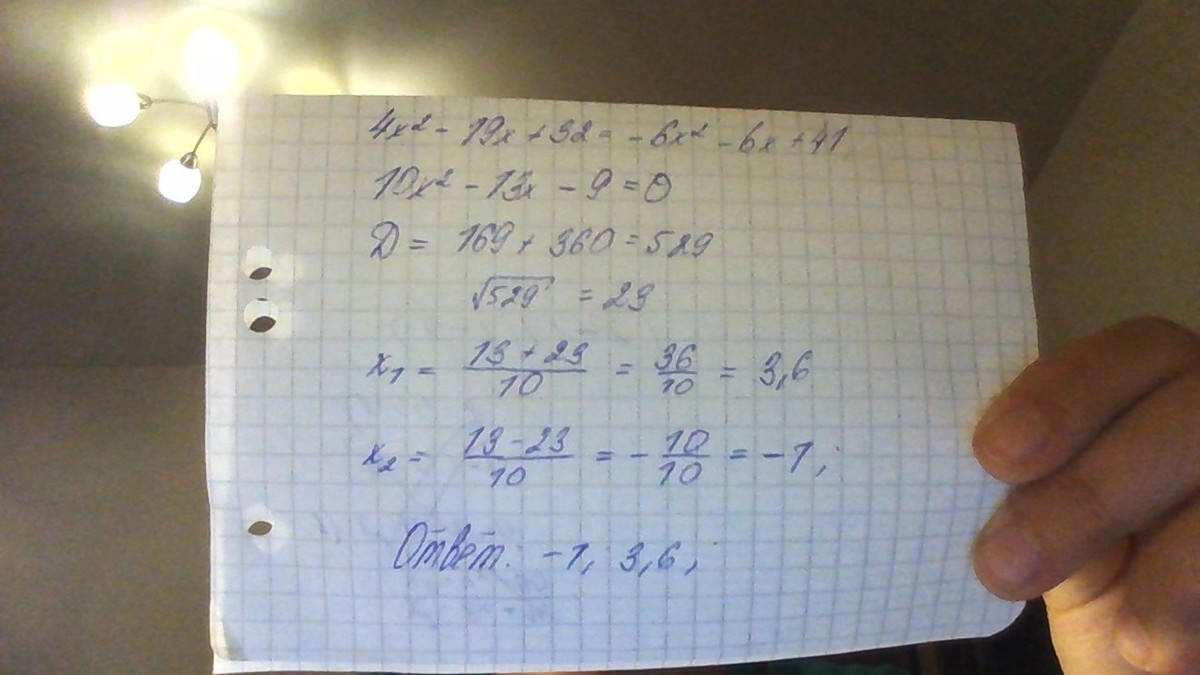 4x² - 19x + 32 = -6x² - 6x + 41
10x² - 13x - 9 = 0
D = 169 + 360 = 529
√529 = 23
x₁ = (13 + 23)/10 = 36/10 = 3,6
x₂ = (13 - 23)/10 = -10/10 = -1;
Ответ: -1; 3,6;